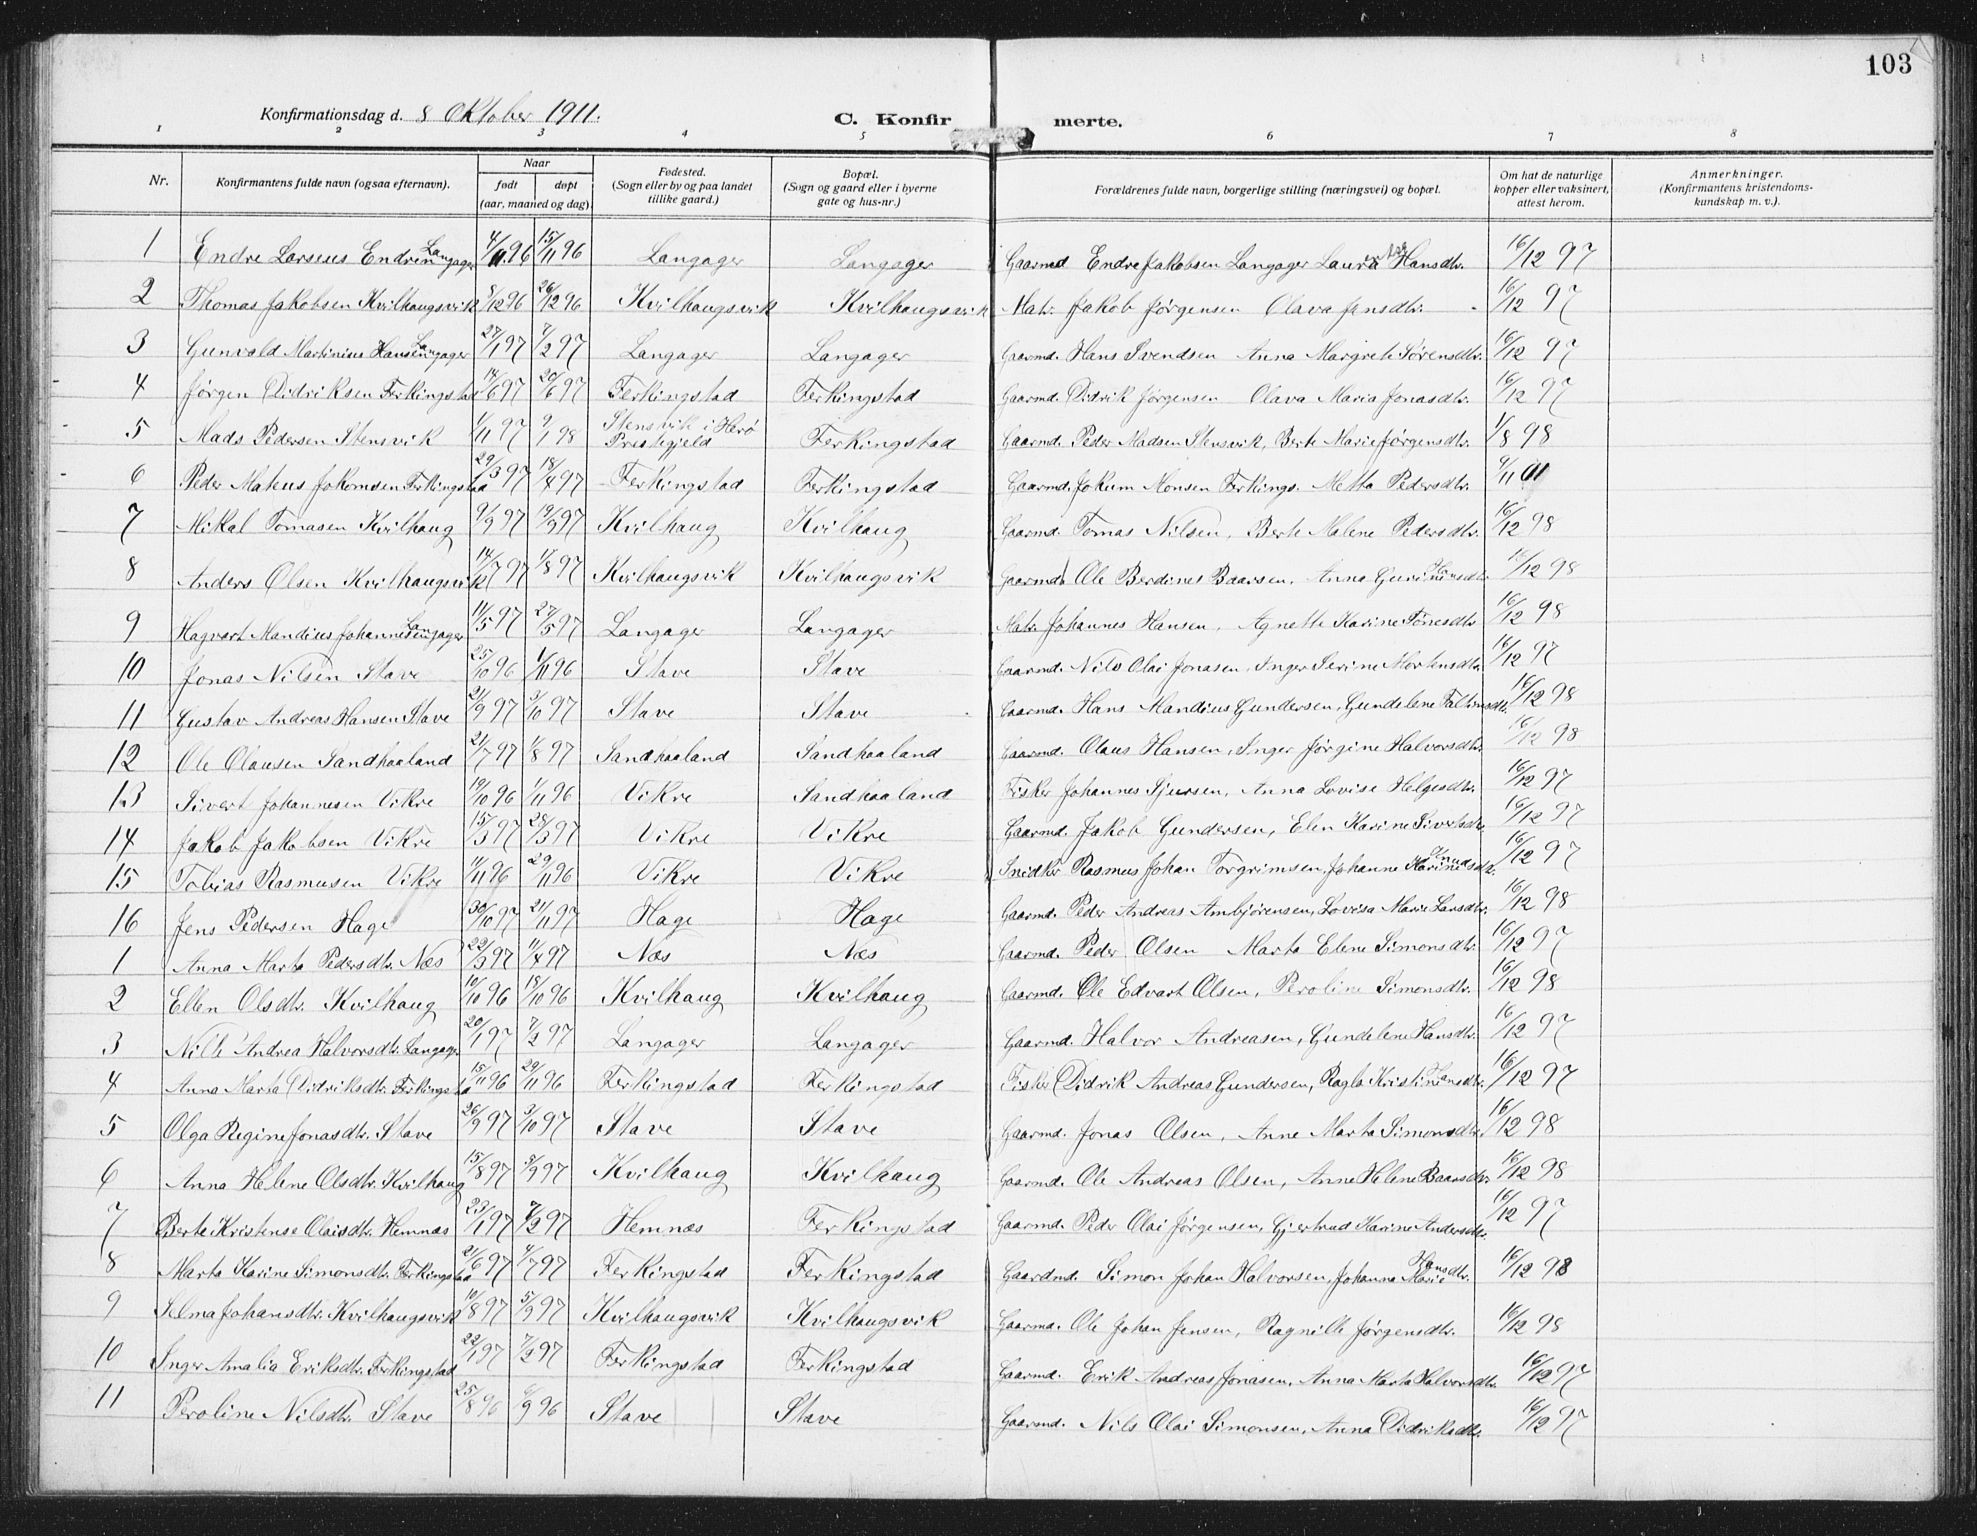 103
Konfirmationsdag d. 8 Oktober 1911.
C. Konfirmerte.
1 2 3 4 5 6 7 8
Nr. Konfirmantens fulde navn (ogsaa efternavn). Naar født døpt (aar, maaned og dag). Fødested. (Sogn eller by og paa landet tillike gaard.) Bopæl. (Sogn og gaard eller i byerne gate og hus-nr.) Forældrenes fulde navn, borgerlige stilling (næringsvei) og bopæl. Om hat de naturlige kopper eller vaksinert, attest herom. Anmerkninger. (Konfirmantens kristendoms-kundskap m. v.).
1 Endre Larseus Endresen Langager 4/11 96 15/11 96 Langager Langager Gaarmd Endre Jakobsen Langager Laura Hansdtr. 16/12 97
2 Thomas Jakobsen Kvilhaugsvik 8/12 96 26/12 96 Kvilhaugsvik Kvilhaugsvik Matr. Jakob Jørgensen Olava Jensdtr. 16/12 97
3 Gunvald Martinius Hansen Langager 27/1 97 7/2 97 Langager Langager Gaarmd. Hans Svendsen Anna Margrete Sørensdtr. 16/12 97
4 Jørgen Didriksen Ferkingstad 14/6 97 20/6 97 Ferkingstad Ferkingstad Gaarmd. Didrik Jørgensen Olava Maria Jonasdtr. 16/12 97
5 Mads Pedersen Stensvik 1/11 97 9/1 98 Stensvik i Herø Prestegjeld Ferkingstad Gaarmd. Peder Madsen Stensvik, Berte Marie Jørgensdtr. 1/8 98
6 Peder Mateus Jokomsen Ferkingstad 29/3 97 18/4 97 Ferkingstad Ferkingstad Gaarmd. Jokum Monsen Ferkings. Metta Pedersdtr. 9/11 01
7 Mikal Tomasen Kvilhaug 9/9 97 19/9 97 Kvilhaug Kvilhaug Gaarmd. Tomas Nilsen, Berte Malene Pedersdtr. 16/12 98
8 Anders Olsen Kvilhaugsvik 14/7 97 1/8 97 Kvilhaugsvik Kvilhaugsvik Gaarmd. Ole Berdines Baarsen, Anna Gurine Hansdtr. 16/12 98
9 Hagvart Mandius Johannesen Langager 11/5 97 27/5 97 Langager Langager Matr. Johannes Hansen, Agnette Karine Tønesdtr. 16/12 98
10 Jonas Nilsen Stave 25/10 96 1/11 96 Stave Stave Gaarmd. Nils Olai Jonasen, Inger Serine Mortensdtr. 16/12 97
11 Gustav Andreas Hansen Stave 21/9 97 3/10 97 Stave Stave Gaarmd. Hans Mandius Gundersen, Gundelene 16/12 98
12 Ole Olausen Sandhaaland 21/7 97 1/8 97 Sandhaaland Sandhaaland Gaarmd. Olaus Hansen, Inger Jørgine Halvorsdtr. 16/12 98
13 Sivert Johannesen Vikre 19/10 96 1/11 96 Vikre Sandhaaland Fisker Johannes Sjursen, Anna Lovise Helgesdtr. 16/12 97
14 Jakob Jakobsen Vikre 15/3 97 28/3 97 Vikre Vikre Gaarmd. Jakob Gundersen, Elen Karine Sivertsdtr. 16/12 97
15 Tobias Rasmusen Vikre 11/11 96 29/11 96 Vikre Vikre Snidker Rasmus Johan Torgrimsen, Johanne Karine Knudsdtr. 16/12 97
16 Jens Pedersen Hage 30/10 97 21/11 97 Hage Hage Gaarmd. Peder Andreas Ambjørensen, Lovisa Marie Larsdtr. 16/12 98
1 Anna Marta Pedersdtr. Næs 22/3 97 11/4 97 Næs Næs Gaarmd. Peder Olsen Marta Elene Simonsdtr. 16/12 97
2 Ellen Olsdtr. Kvilhaug 10/10 96 18/10 96 Kvilhaug Kvilhaug Gaarmd. Ole Edvart Olsen, Peroline Simonsdtr. 16/12 98
3 Nille Andrea Halvorsdtr. Langager 20/1 97 7/2 97 Langager Langager Gaarmd. Halvor Andreasen, Gundelene Hansdtr. 16/12 97
4 Anna Marta Didriksdtr. Ferkingstad 15/11 96 29/11 96 Ferkingstad Ferkingstad Fisker Didrik Andreas Gundersen, Ragla Kristine Hansdtr. 16/12 97
5 Olga Regine Jonasdtr. Stave 26/9 97 3/10 97 Stave Stave Gaarmd. Jonas Olsen, Anne Marta Simonsdtr. 16/12 98
6 Anna Helene Olsdtr. Kvilhaug 15/8 97 5/9 97 Kvilhaug Kvilhaug Gaarmd. Ole Andreas Olsen, Anne Helene Baarsdtr. 16/12 98
7 Berte Kristense Olaisdtr. Hemnæs 23/1 97 7/2 97 Hemnæs Ferkingstad Gaarmd. Peder Olai Jørgensen, Gjertrud Karine Andersdtr. 16/12 97
8 Marta Karine Simonsdtr. Ferkingstad 21/6 97 4/7 97 Ferkingstad Ferkingstad Gaardmd. Simon Johan Halvorsen, Johanna Marie Hansdtr. 16/12 98
9 Selma Johansdtr. Kvilhaugsvik 10/8 97 5/9 97 Kvilhaugsvik Kvilhaugsvik Gaarmd. Ole Johan Jensen, Ragnille Jørgensdtr. 16/12 98
10 Inger Amalia Eriksdtr. Ferkingstad 22/1 97 7/2 97 Ferkingstad Ferkingstad Gaarmd. Erik Andreas Jonasen, Anna Marta Halvorsdtr. 16/12 97
11 Peroline Nilsdtr. Stave 25/8 96 6/9 96 Stave Stave Gaarmd. Nils Olai Simonsen, Anna Didriksdtr. 16/12 97